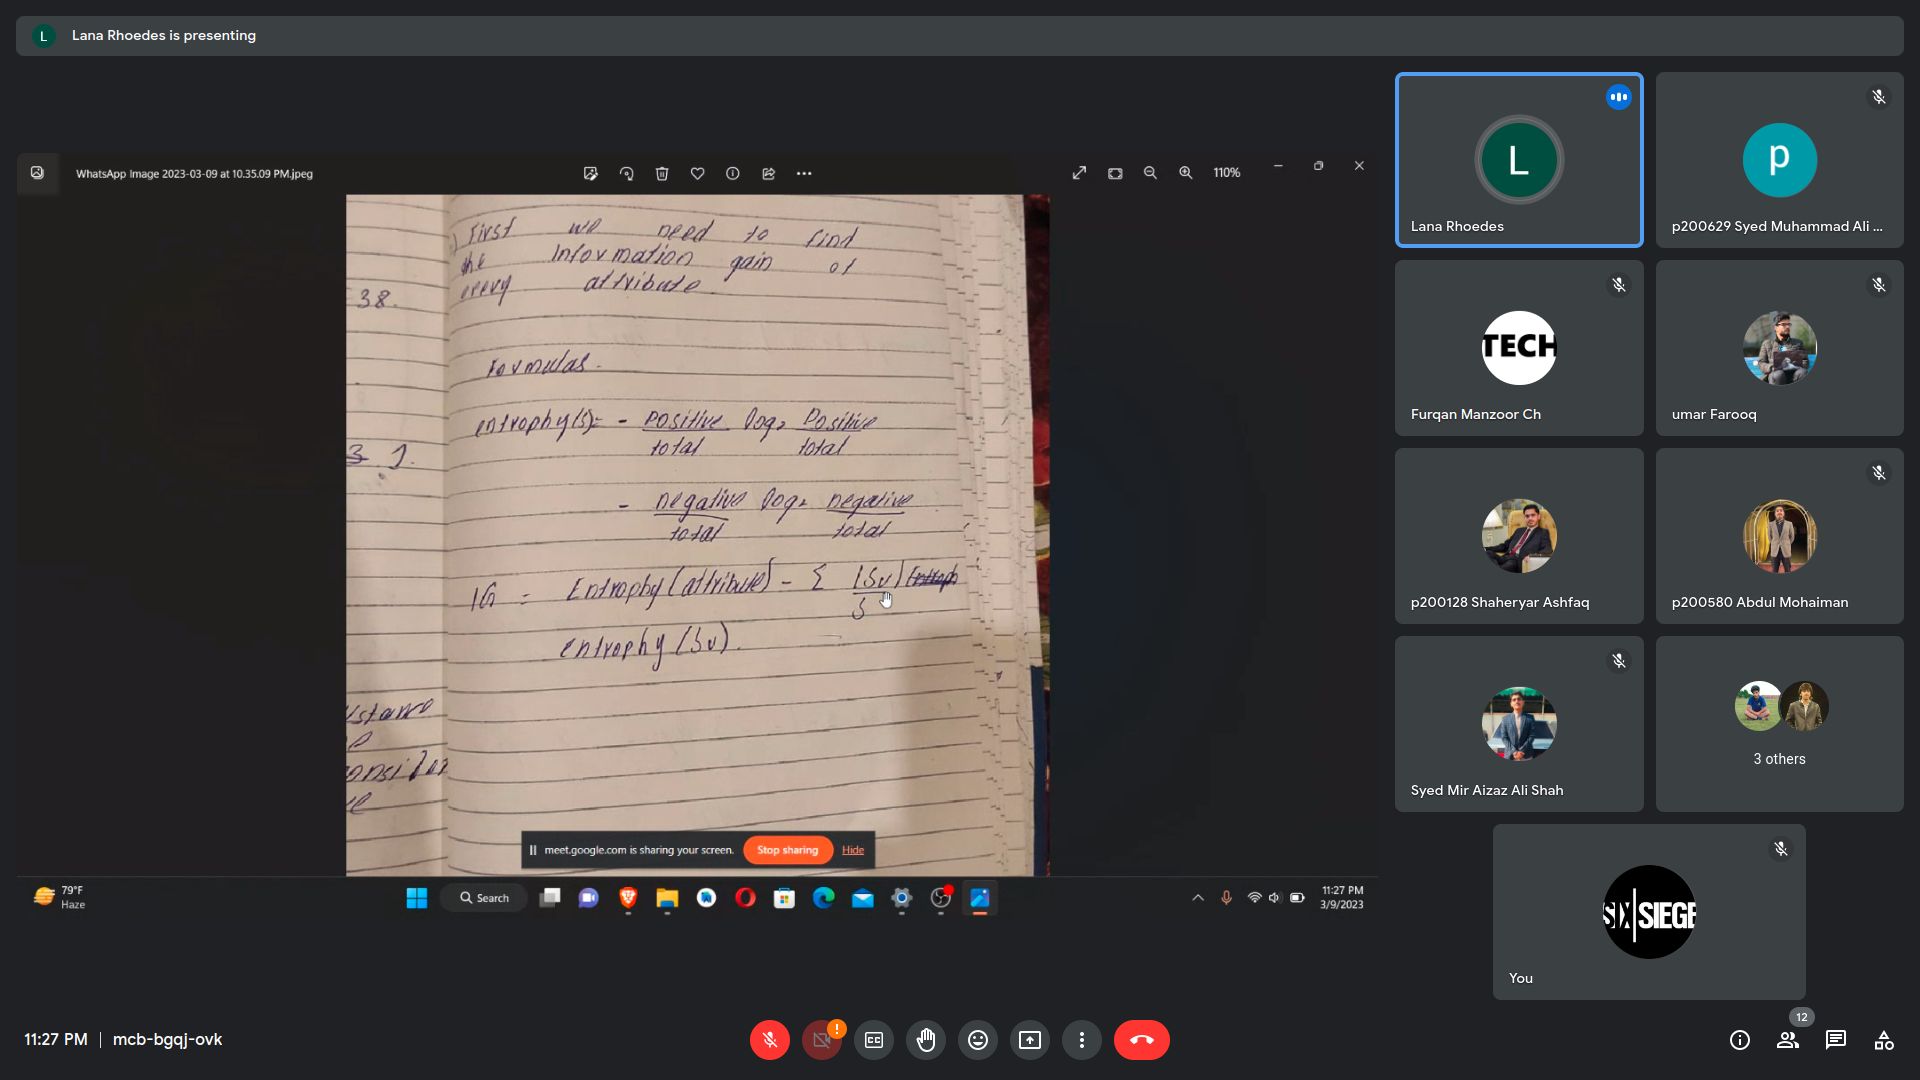 L
Lana Rhoedes is presenting
WhatsApp Image 2023-03-09 at 10.35.09 PM.jpeg
110%
First we need to find
the Information gain of
every attribute
38.
Formulas.
entrophy(s) = - Positive log2 Positive
total total
3 1.
- negative log2 negative
total total
IG = Entrophy (attribute) - Σ |Sv|
S
entrophy (Sv).
meet.google.com is sharing your screen.
Stop sharing
Hide
79°F
Haze
Search
11:27 PM
3/9/2023
L
Lana Rhoedes
p
p200629 Syed Muhammad Ali ...
TECH
Furqan Manzoor Ch
umar Farooq
p200128 Shaheryar Ashfaq
p200580 Abdul Mohaiman
Syed Mir Aizaz Ali Shah
3 others
SIX SIEGE
You
11:27 PM | mcb-bgqj-ovk
CC
12